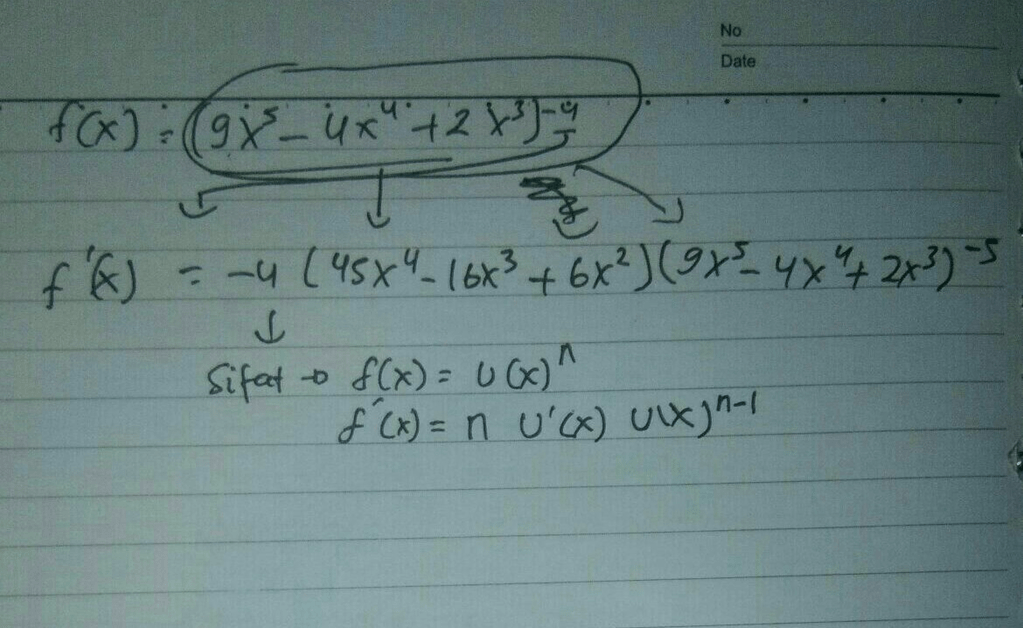 No
Date
f(x) = (9x⁵ - 4x⁴ + 2x³)⁻⁴
f'(x) = -4 (45x⁴ - 16x³ + 6x²)(9x⁵ - 4x⁴ + 2x³)⁻⁵
Sifat → f(x) = U(x)ⁿ
f'(x) = n U'(x) U(x)ⁿ⁻¹